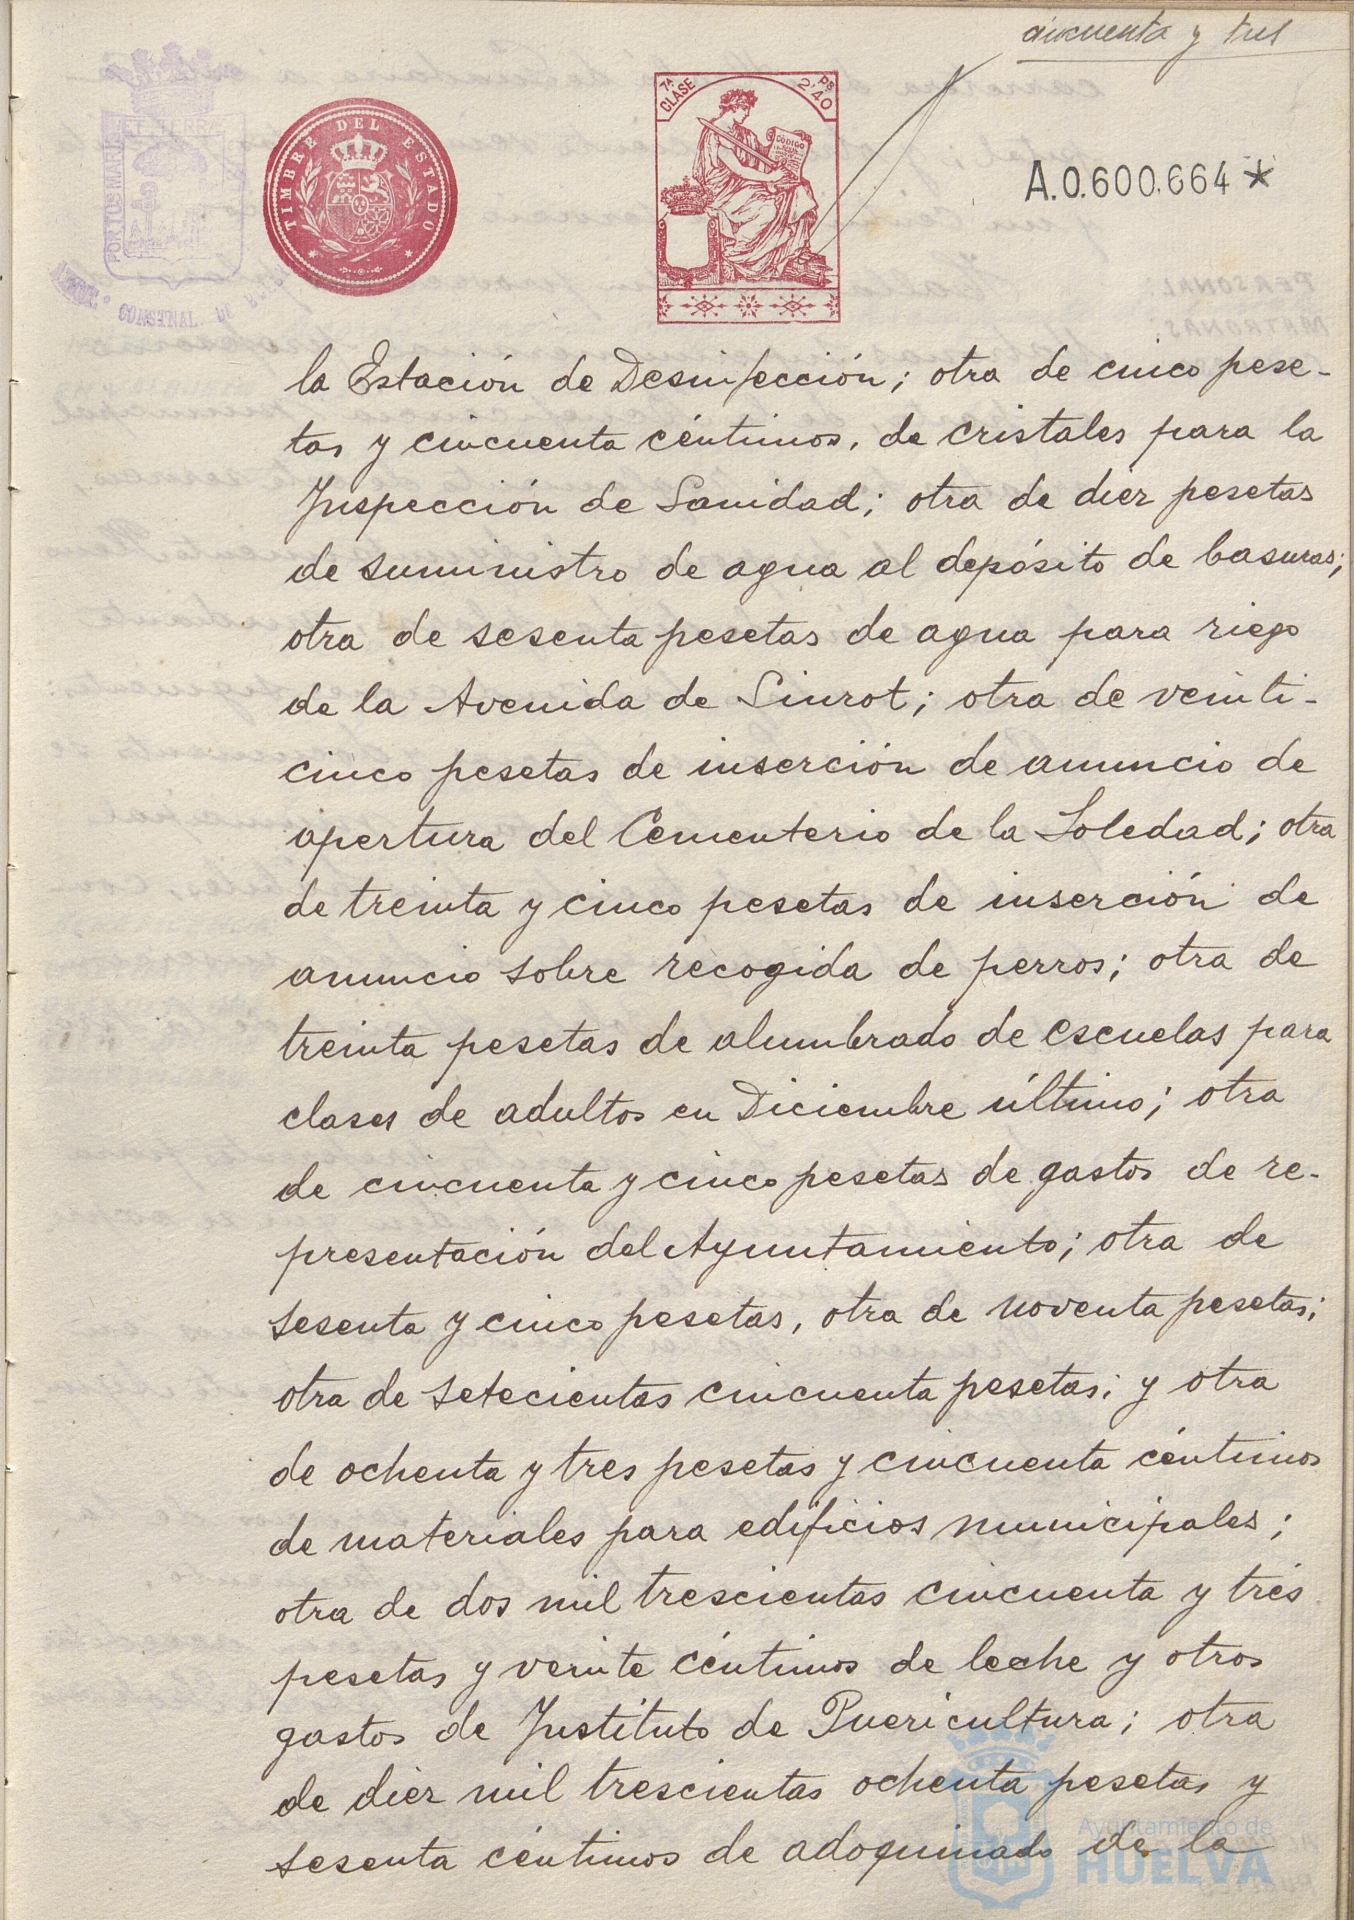 cincuenta y tres
7ª CLASE
Ps 2'40
TIMBRE DEL ESTADO
CODIGO
A.0.600.664 *
la Estación de Desinfección; otra de cinco pese-
tas y cincuenta céntimos, de cristales para la
Inspección de Sanidad; otra de diez pesetas
de suministro de agua al depósito de basuras;
otra de sesenta pesetas de agua para riego
de la Avenida de Siurot; otra de veinti-
cinco pesetas de inserción de anuncio de
apertura del Cementerio de la Soledad; otra
de treinta y cinco pesetas de inserción de
anuncio sobre recogida de perros; otra de
treinta pesetas de alumbrado de escuelas para
clases de adultos en Diciembre último; otra
de cincuenta y cinco pesetas de gastos de re-
presentación del Ayuntamiento; otra de
sesenta y cinco pesetas, otra de noventa pesetas;
otra de setecientas cincuenta pesetas; y otra
de ochenta y tres pesetas y cincuenta céntimos
de materiales para edificios municipales;
otra de dos mil trescientas cincuenta y tres
pesetas y veinte céntimos de leche y otros
gastos de Instituto de Puericultura; otra
de diez mil trescientas ochenta pesetas y
sesenta céntimos de adoquinado de la
Ayuntamiento de
HUELVA